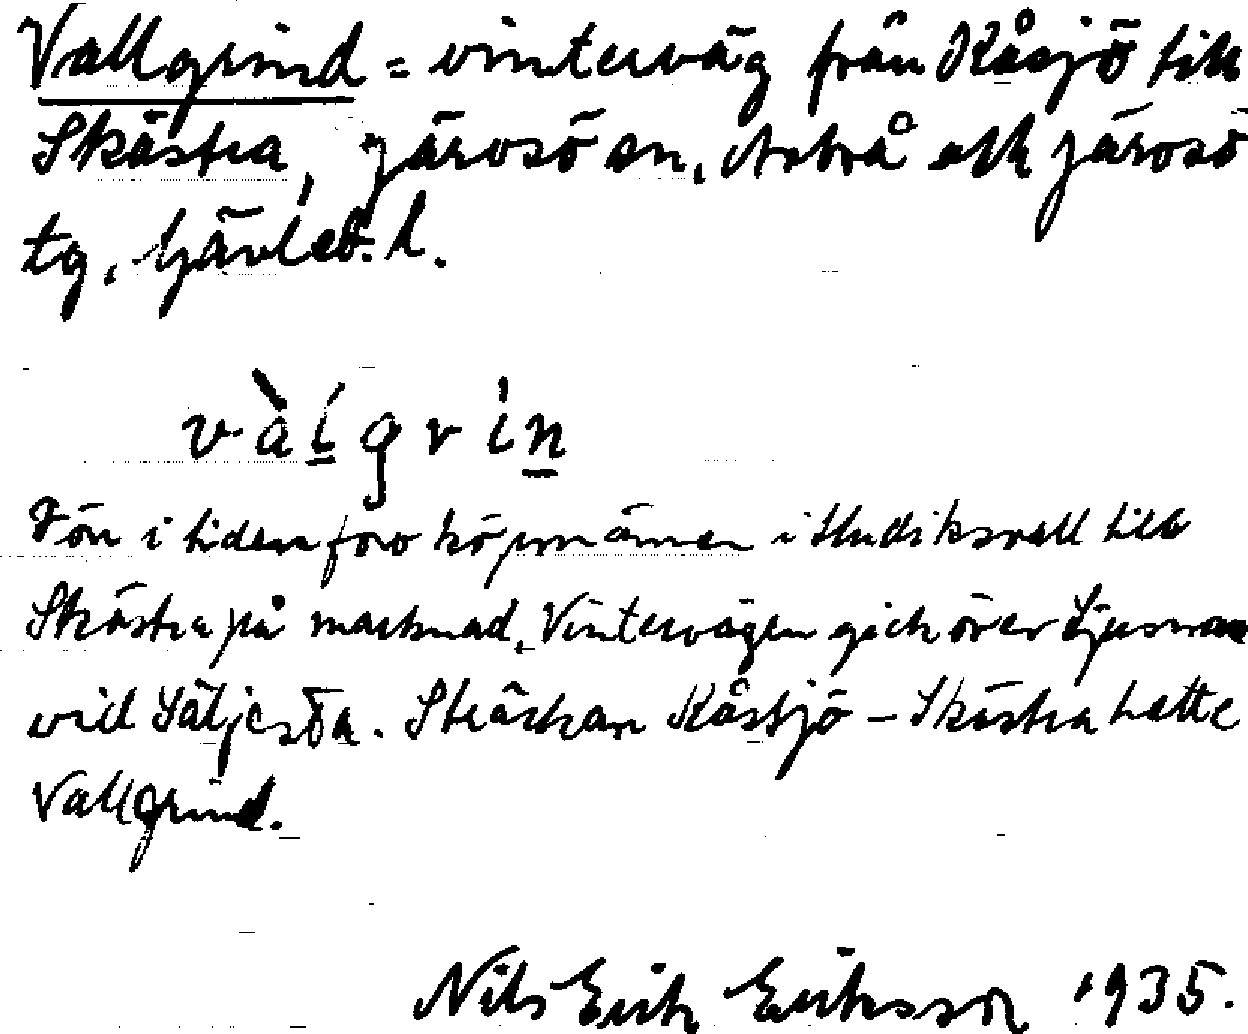 Vallgrind = vinterväg från Kåsjö till
Skästra, Järvsö sn, Arbrå och Järvsö
tg, Gävleb. l.
vàlgrin
Förr i tiden foro köpmännen i Hudiksvall till
Skästra på marknad. Vintervägen gick över Ljusnan
vid Säljesta. Sträckan Kåsjö – Skästra hette
Vallgrind.
Nils Erik Eriksson 1935.